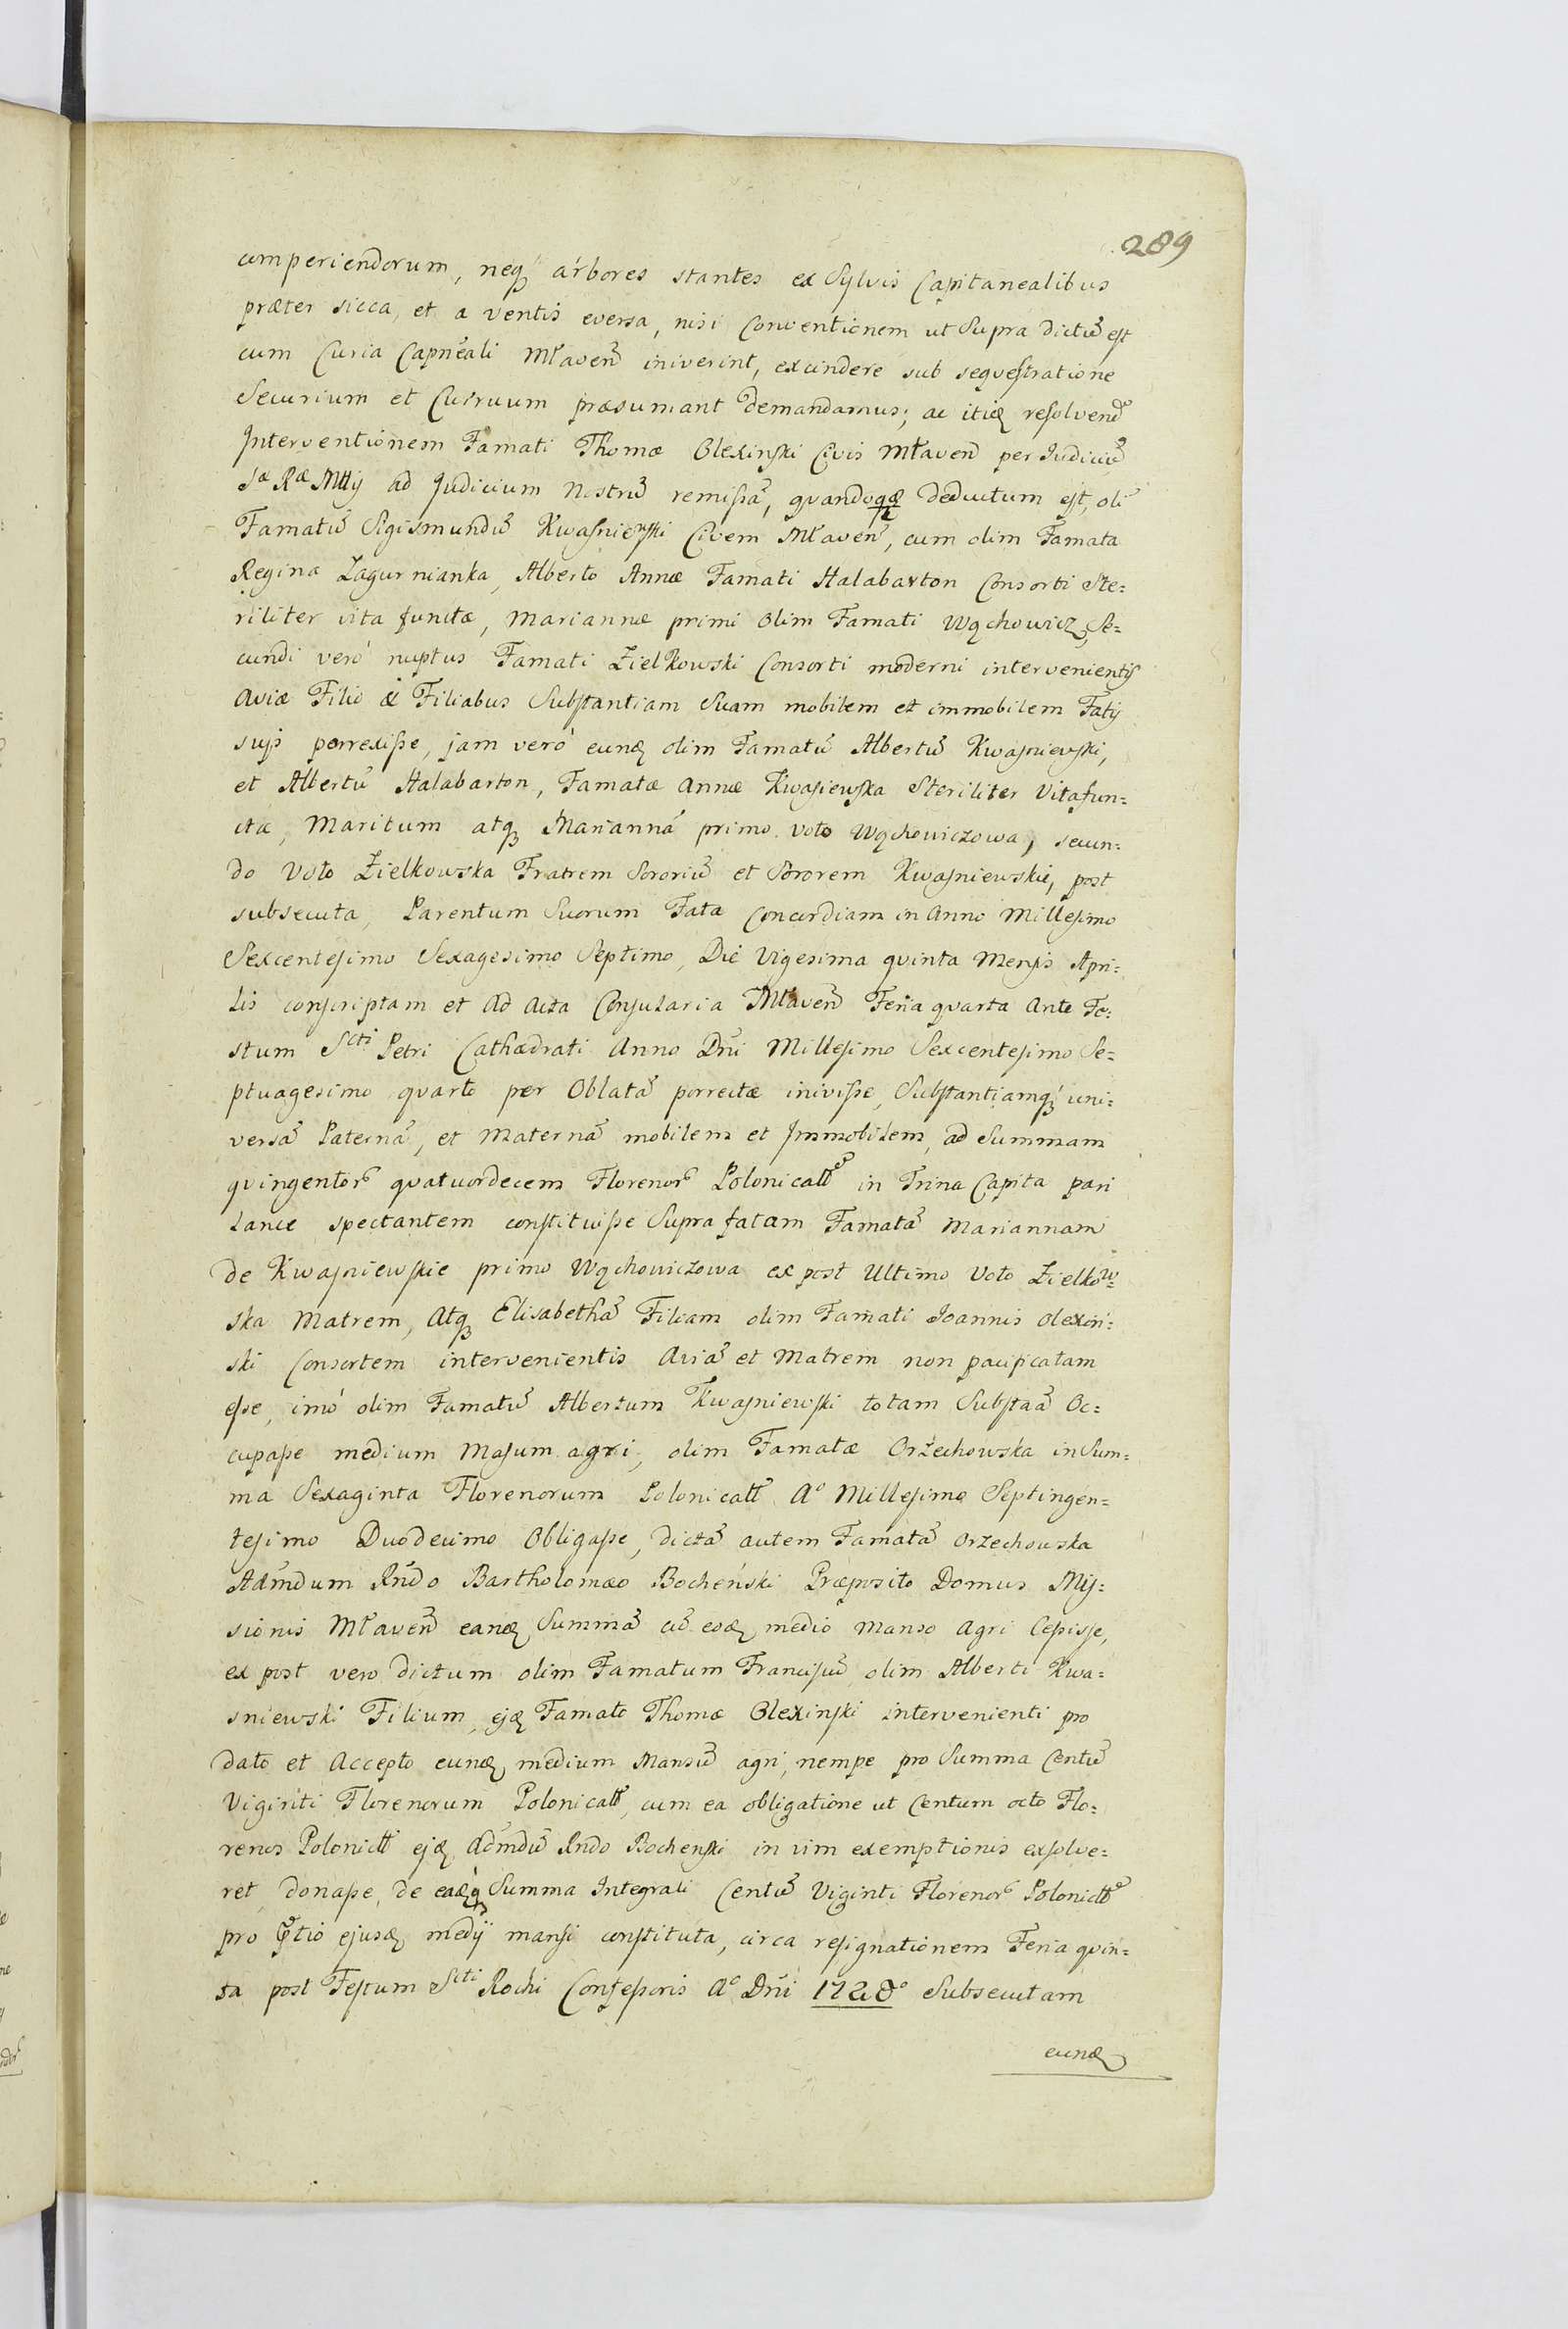 289
comperiendorum, neq̃ arbores stantes ex Sylvis Capitanealibus
præter sicca, et a ventis eversa, nisi Conventionem ut Supra dictũ est
cum Curia Capñeali Mławeñ iniverint, excindere sub sequestratione
Securium et Curruum præsumant demandamus; ac itiõ resolvend
Interventionem Famati Thomæ Olexinski Civis Mławeñ per Iudiciũ
Sæ Ræ Mttij ad Judicium Nostrũ remissã, quandoqæ deductum est, oli
Famatũ Sigismundũ Kwasniewski Civem Mławeñ, cum olim Famata
Regina Zagurnianka, Alberto Annæ Famati Halabarton Consorti Ste:
riliter vita functæ, Mariannæ primi olim Famati Wąchowicz, Se:
cundi veró nuptus Famati Zielkowski Consorti moderni intervenientis
Aviæ Filio & Filiabus Substantiam Suam mobilem et immobilem Fatij
suis porrexisse, jam veró eunđ olim Famatũ Albertũ Kwasniewski,
et Albertũ Halabarton, Famatæ Annæ Kwasiewska Steriliter Vitafun:
ctæ, Maritum atq̃ Mariannã primo voto Wąchowiczowa, secun:
do Voto Zielkowska Fratrem Sororiũ et Sororem Kwasniewskie, post
subsecuta, Parentum Suorum Fata Concordiam in Anno Millesimo
Sexcentesimo Sexagesimo Septimo, Die Vigesima quinta Mensis Apri:
lis conscriptam et ad Acta Consularia Mławeñ Feria quarta Ante Fe:
stum Scti Petri Cathædrati Anno Dñi Millesimo Sexcentesimo Se:
ptuagesimo quarto per Oblatã porrectæ inivisse, Substantiamq̃ uni:
versã Paternã, et Maternã mobilem et Immobilem, ad Summam
quingentor̃ quatuordecem Florenor̃ Polonicall in Trina Capita pari
lance spectantem constituisse Supra fatam Famatã Mariannam
de Kwasniewskie primo Wąchowiczowa ex post Ultimo Voto Zielkow:
ska Matrem, Atq̃ Elisabethã Filiam olim Famati Joannis Olexin:
ski Consortem intervenientis Aviã et Matrem non pacificatam
esse, imó olim Famatũ Albertum Kwasniewski totam Substaã Oc:
cupasse medium Masum agri, olim Famatæ Orzechowska in Sum:
ma Sexaginta Florenorum Polonicall Aº Millesimo Septingen:
tesimo Duodecimo Obligasse, dictã autem Famatã Orzechowska
Adm̃dum Rñdo Bartholomæo Bocheński Præposito Domus Mis:
sionis Mławeñ eanđ Summã cũ eođ medio manso Agri Cepisse,
ex post vero dictum olim Famatum Franciscũ, olim Alberti Kwa:
sniewski Filium, ejđ Famato Thomæ Olexinski intervenienti pro
dato et Accepto eunđ medium Mansũ agri, nempe pro Summa Centũ
Viginti Florenorum Polonicall, cum ea obligatione ut Centum octo Flo:
renos Polonicll ejđ Adm̃dũ Rñdo Bochenski in vim exemptionis exsolve:
ret donasse, de eađq̃ Summa Integrali Centũ Viginti Florenor̃ Polonicll
pro ptio ejusđ medÿ mansi constituta, circa resignationem Feria quin:
ta post Festum Scti Rochi Confessoris Aº Dñi 1728º Subsecutam
eunđ